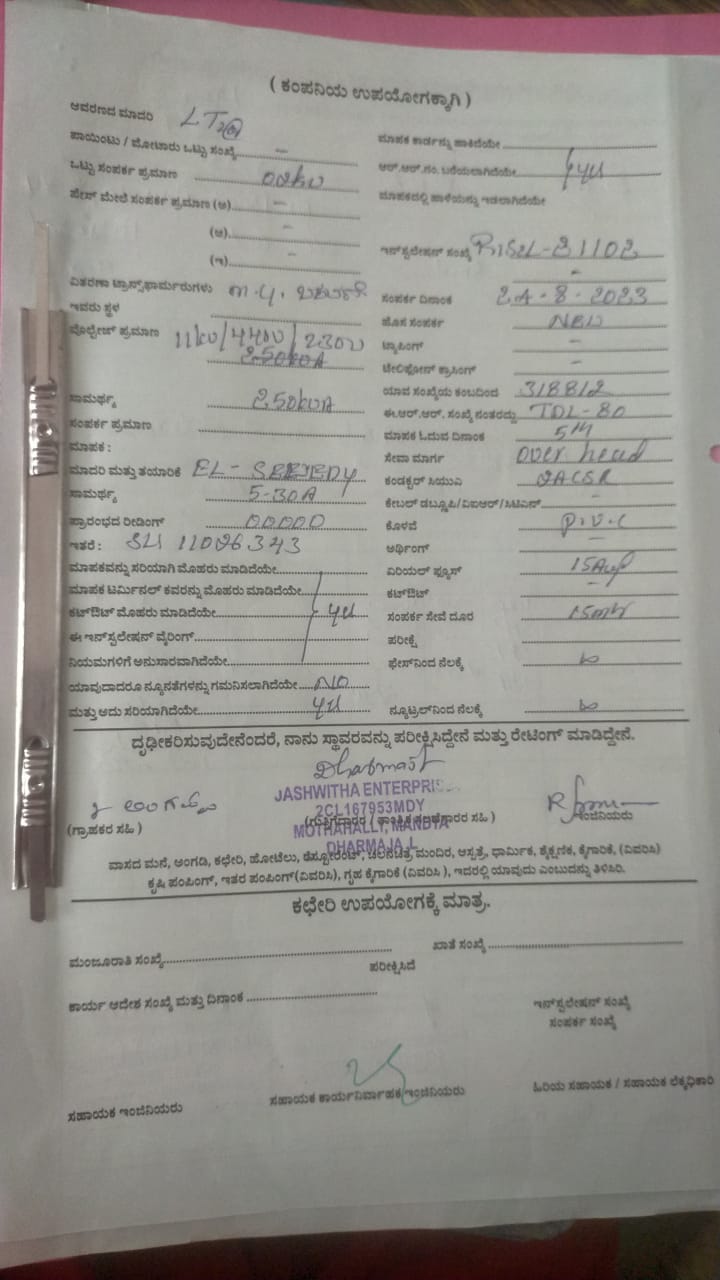 ( ಕಂಪನಿಯ ಉಪಯೋಗಕ್ಕಾಗಿ )
ಆವರಣದ ಮಾದರಿ LT2(a)
ಪಾಯಿಂಟು / ಮೋಟಾರು ಒಟ್ಟು ಸಂಖ್ಯೆ –
ಒಟ್ಟು ಸಂಪರ್ಕ ಪ್ರಮಾಣ 02kw
ಪೇಸ್ ಮೇಲೆ ಸಂಪರ್ಕ ಪ್ರಮಾಣ (ಅ) –
(ಆ) –
(ಇ) –
ವಿತರಣಾ ಟ್ರಾನ್ಸ್‌ಫಾರ್ಮರುಗಳು
ಇವರು ಸ್ಥಳ
ವೋಲ್ಟೇಜ್ ಪ್ರಮಾಣ 11kv/440v/230v
250kVA
ಸಾಮರ್ಥ್ಯ 250kVA
ಸಂಪರ್ಕ ಪ್ರಮಾಣ
ಮಾಪಕ :
ಮಾದರಿ ಮತ್ತು ತಯಾರಿಕೆ EL-
ಸಾಮರ್ಥ್ಯ 5-30A
ಪ್ರಾರಂಭದ ರೀಡಿಂಗ್ 00000
ಇತರೆ : 11026343
ಮಾಪಕವನ್ನು ಸರಿಯಾಗಿ ಮೊಹರು ಮಾಡಿದೆಯೇ
ಮಾಪಕ ಟರ್ಮಿನಲ್ ಕವರನ್ನು ಮೊಹರು ಮಾಡಿದೆಯೇ
ಕಟ್‌ಔಟ್ ಮೊಹರು ಮಾಡಿದೆಯೇ yes
ಈ ಇನ್‌ಸ್ಟಲೇಷನ್ ವೈರಿಂಗ್
ನಿಯಮಗಳಿಗೆ ಅನುಸಾರವಾಗಿದೆಯೇ
ಯಾವುದಾದರೂ ನ್ಯೂನತೆಗಳನ್ನು ಗಮನಿಸಲಾಗಿದೆಯೇ NO
ಮತ್ತು ಅದು ಸರಿಯಾಗಿದೆಯೇ yes
ಮಾಪಕ ಕಾರ್ಡನ್ನು ಹಾಕಿದೆಯೇ
ಆರ್.ಆರ್.ನಂ. ಬರೆಯಲಾಗಿದೆಯೇ yes
ಮಾಪಕದಲ್ಲಿ ಹಾಳೆಯನ್ನು ಇಡಲಾಗಿದೆಯೇ
ಇನ್‌ಸ್ಟಲೇಷನ್ ಸಂಖ್ಯೆ
–
ಸಂಪರ್ಕ ದಿನಾಂಕ 24-8-2023
ಹೊಸ ಸಂಪರ್ಕ NEW
ಟ್ಯಾಪಿಂಗ್ –
ಟೆಲಿಫೋನ್ ಕ್ರಾಸಿಂಗ್ –
ಯಾವ ಸಂಖ್ಯೆಯ ಕಂಬದಿಂದ 318812
ಈ.ಆರ್.ಆರ್. ಸಂಖ್ಯೆ ನಂತರದ್ದು TDL-80
ಮಾಪಕ ಓದುವ ದಿನಾಂಕ 5th
ಸೇವಾ ಮಾರ್ಗ over head
ಕಂಡಕ್ಟರ್ ಸಿಯುವಿ ACSR
ಕೇಬಲ್ ಡಬ್ಲ್ಯೂಪಿ/ವಿಐಆರ್/ಸಿಟಿಎಸ್ –
ಕೊಳವೆ P.V.C
ಅರ್ಥಿಂಗ್
ಏರಿಯಲ್ ಫ್ಯೂಸ್ 15Amp
ಕಟ್‌ಔಟ್ –
ಸಂಪರ್ಕ ಸೇವೆ ದೂರ 15mtr
ಪರೀಕ್ಷೆ
ಫೇಸ್‌ನಿಂದ ನೆಲಕ್ಕೆ
ನ್ಯೂಟ್ರಲ್‌ನಿಂದ ನೆಲಕ್ಕೆ
ದೃಢೀಕರಿಸುವುದೇನೆಂದರೆ, ನಾನು ಸ್ಥಾವರವನ್ನು ಪರೀಕ್ಷಿಸಿದ್ದೇನೆ ಮತ್ತು ರೇಟಿಂಗ್ ಮಾಡಿದ್ದೇನೆ.
JASHWITHA ENTERPRIS
2CL167953MDY
MOTHAHALLY, MANDYA
DHARMAJA.L
(ಗ್ರಾಹಕರ ಸಹಿ )
ಸಹಿ )
ಇಂಜಿನಿಯರು
ವಾಸದ ಮನೆ, ಅಂಗಡಿ, ಕಛೇರಿ, ಹೋಟೆಲು, ರೆಸ್ಟೋರೆಂಟ್, ಚಲನಚಿತ್ರ ಮಂದಿರ, ಆಸ್ಪತ್ರೆ, ಧಾರ್ಮಿಕ, ಶೈಕ್ಷಣಿಕ, ಕೈಗಾರಿಕೆ, (ವಿವರಿಸಿ)
ಕೃಷಿ ಪಂಪಿಂಗ್, ಇತರ ಪಂಪಿಂಗ್(ವಿವರಿಸಿ), ಗೃಹ ಕೈಗಾರಿಕೆ (ವಿವರಿಸಿ ), ಇದರಲ್ಲಿ ಯಾವುದು ಎಂಬುದನ್ನು ತಿಳಿಸಿರಿ.
ಕಛೇರಿ ಉಪಯೋಗಕ್ಕೆ ಮಾತ್ರ.
ಮಂಜೂರಾತಿ ಸಂಖ್ಯೆ
ಖಾತೆ ಸಂಖ್ಯೆ
ಪರೀಕ್ಷಿಸಿದೆ
ಕಾರ್ಯ ಆದೇಶ ಸಂಖ್ಯೆ ಮತ್ತು ದಿನಾಂಕ
ಇನ್‌ಸ್ಟಲೇಷನ್ ಸಂಖ್ಯೆ
ಸಂಪರ್ಕ ಸಂಖ್ಯೆ
ಸಹಾಯಕ ಇಂಜಿನಿಯರು
ಸಹಾಯಕ ಕಾರ್ಯನಿರ್ವಾಹಕ ಇಂಜಿನಿಯರು
ಹಿರಿಯ ಸಹಾಯಕ / ಸಹಾಯಕ ಲೆಕ್ಕಧಿಕಾರಿ